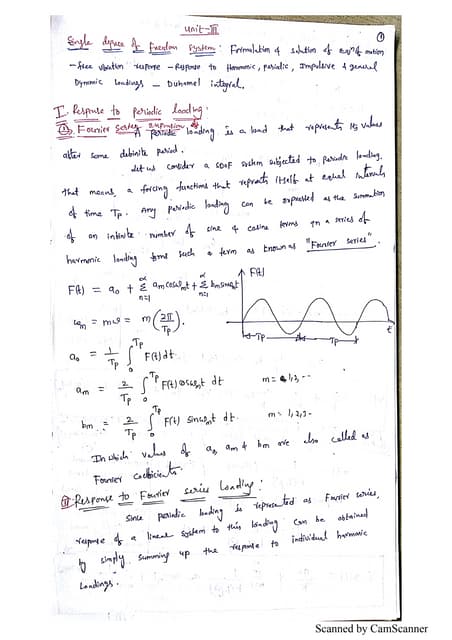 Unit-III
①
Single degree of Freedom System: Formulation & solution of eqn of motion
- free vibration response - Response to Harmonic, periodic, Impulsive & general
Dynamic Loadings - Duhamel integral.
I. Response to periodic loading.
(i) Fourier series expansion of
A periodic loading is a load that repeats its values
after some definite period.
Let us consider a SDOF system subjected to periodic loading.
That means, a forcing functions that repeats itself at equal intervals
of time Tp. Any periodic loading can be expressed as the summation
of an infinite number of sine & cosine terms in a series of
harmonic loading terms such a term as known as "Fourier series".
F(t) = a₀ + Σ am cosωmt + Σ bm sinωmt
α n=1 α n=1
ωm = mω = m(2π/Tp).
F(t)
t
Tp Tp
a₀ = 1/Tp ∫₀^Tp F(t) dt
am = 2/Tp ∫₀^Tp F(t) cosωmt dt m = 1,2,--
bm = 2/Tp ∫₀^Tp F(t) sinωmt dt. m = 1,2,3-
In which values of a₀, am & bm are also called as
Fourier coefficients.
(ii) Response to Fourier series Loading:
Since periodic loading is represented as Fourier series,
response of a linear system to this loading can be obtained
by simply summing up the response to individual harmonic
Loadings.
Scanned by CamScanner